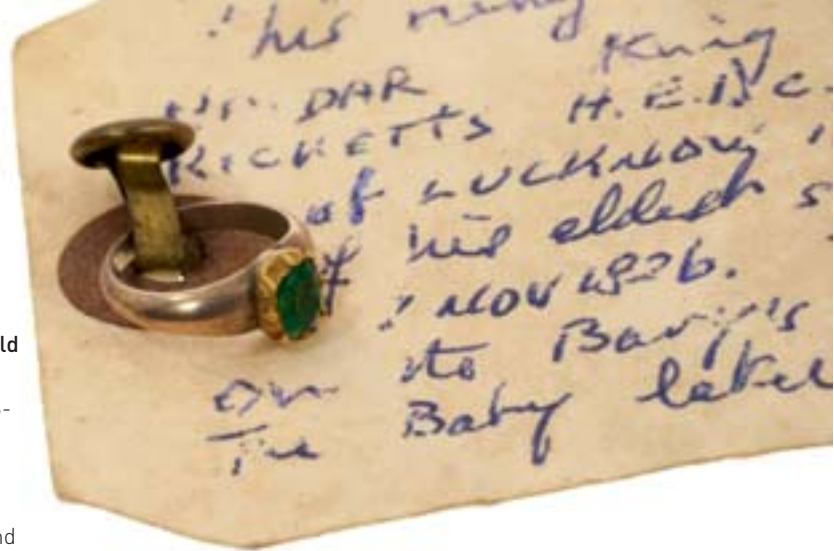 his
King
DAR
RICKETTS H.E.I.C.
of LUCKNOW
of his eldest s
NOV 1826.
to Bary's
The Baby label
ld
-
nd